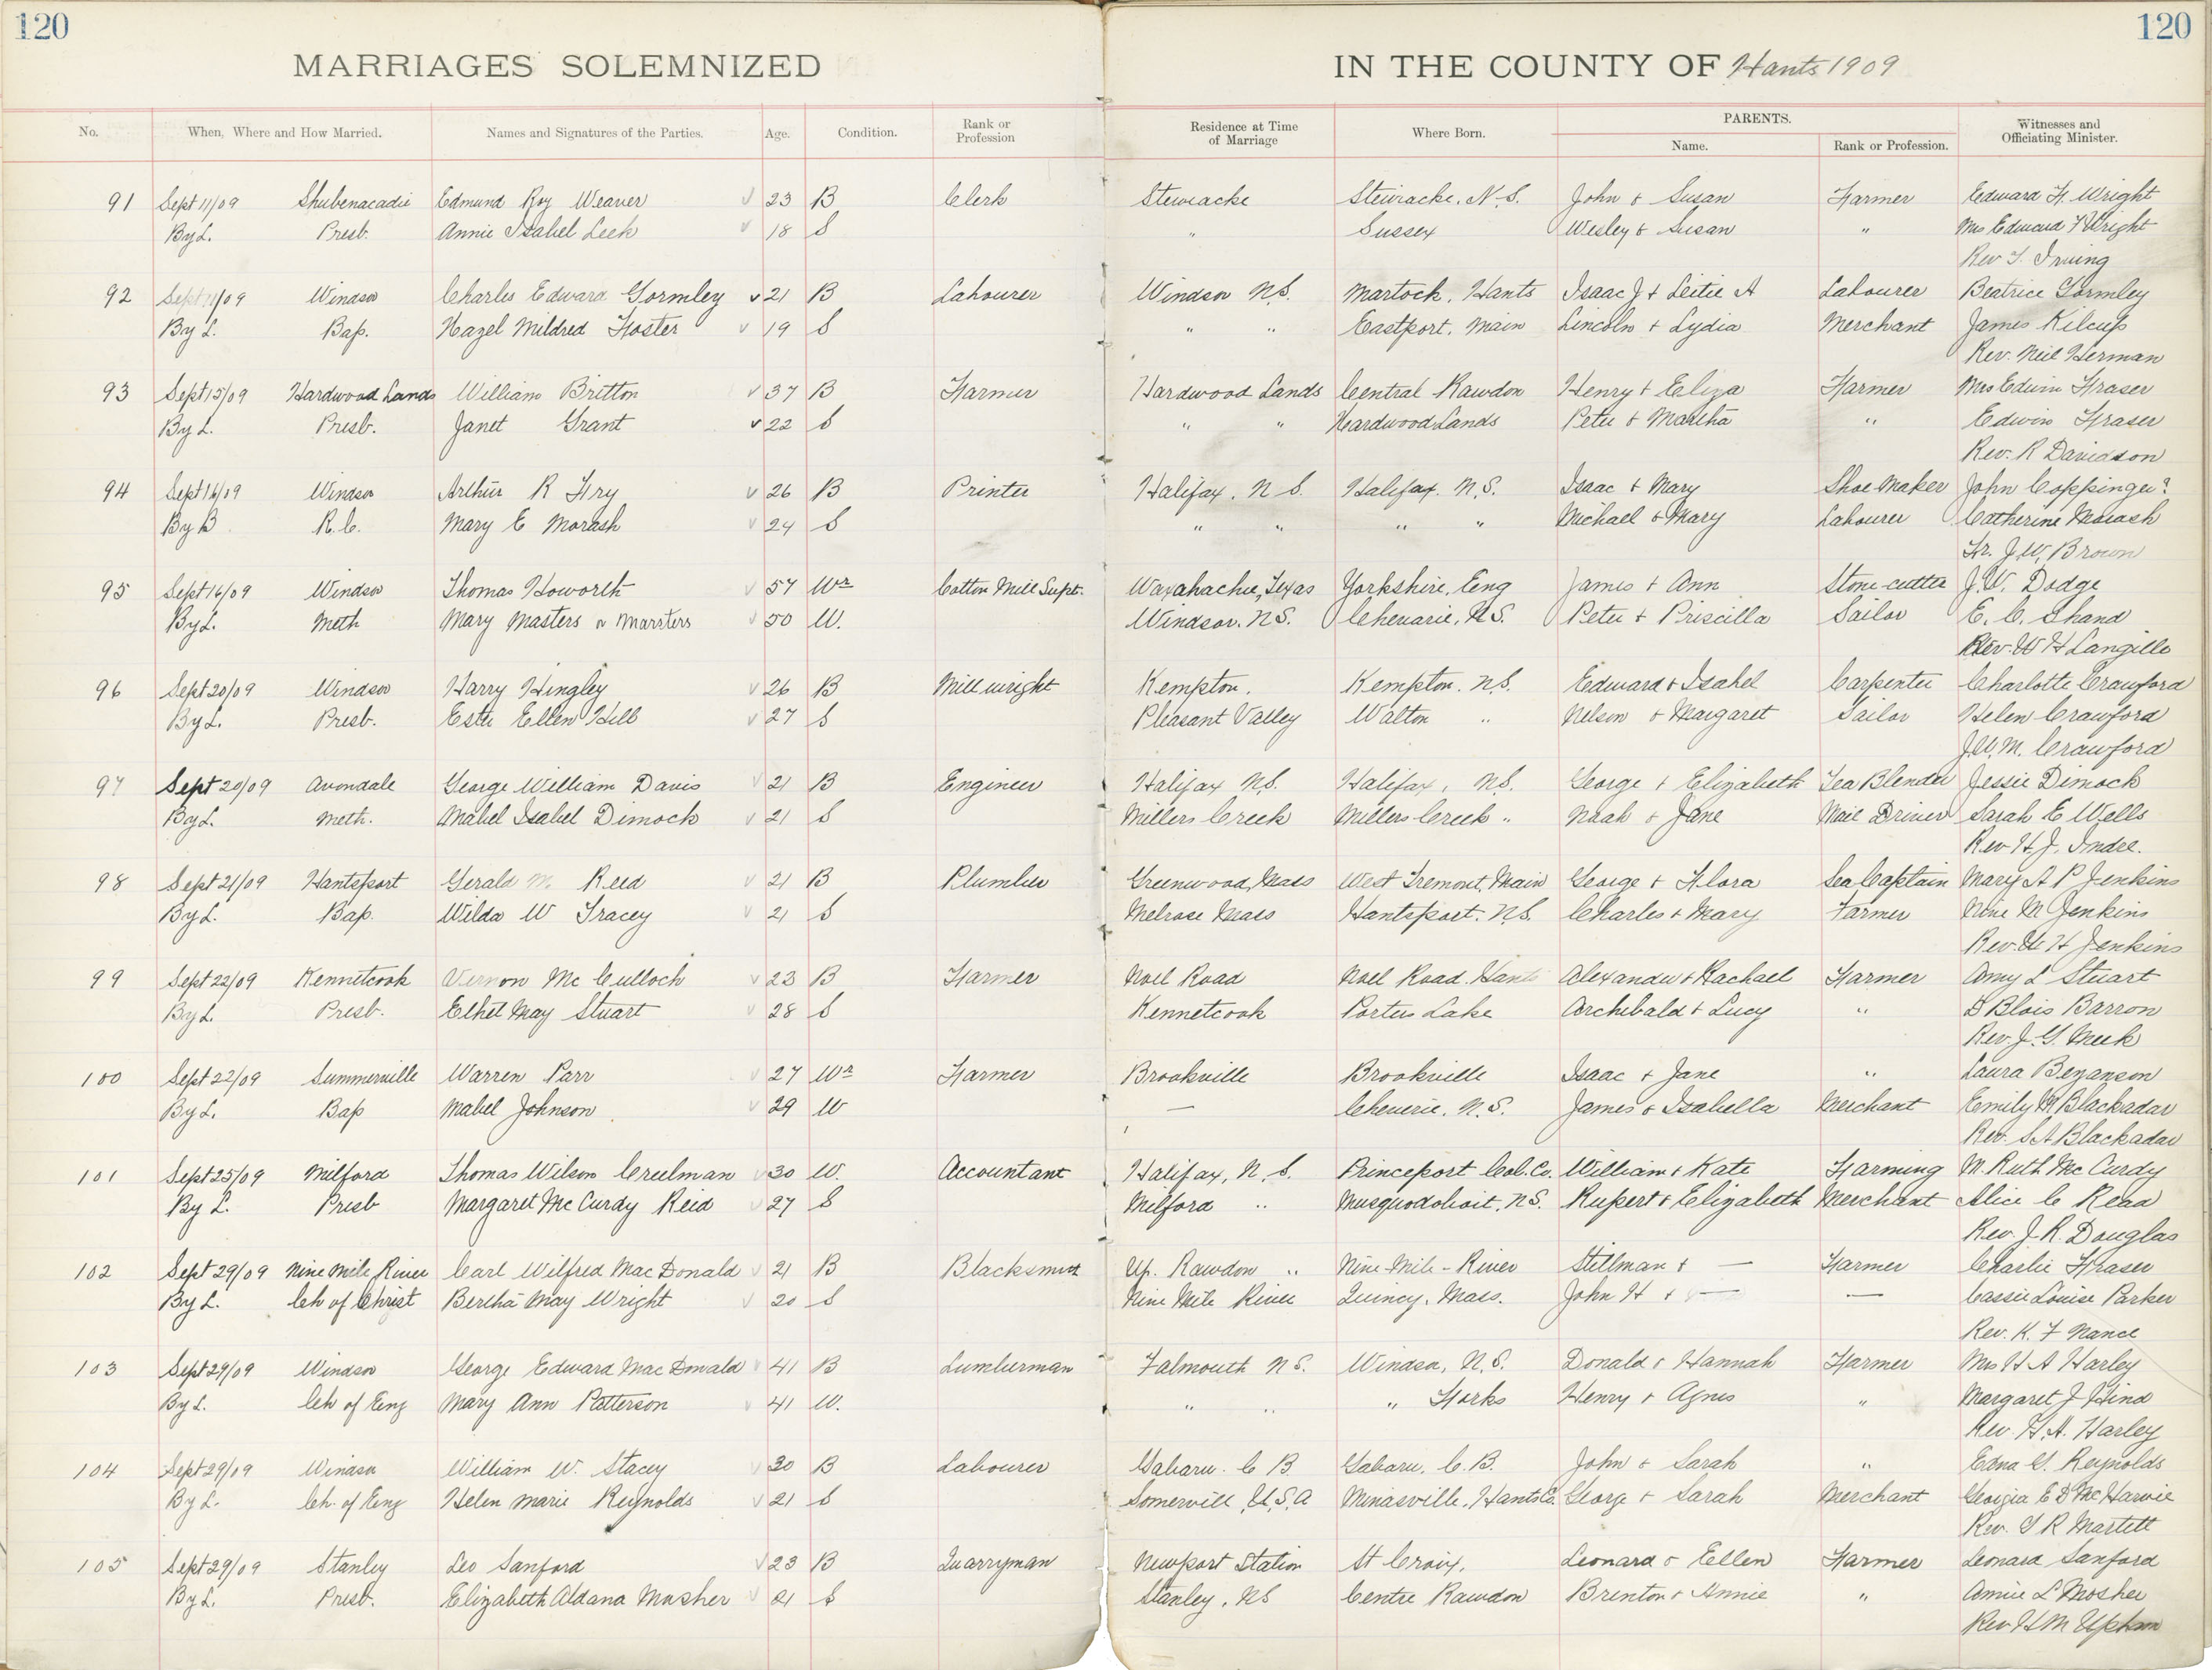 120
120
MARRIAGES SOLEMNIZED
IN THE COUNTY OF Hants 1909
No. When, Where and How Married. Names and Signatures of the Parties. Age. Condition. Rank or Profession Residence at Time of Marriage Where Born. PARENTS. Name. Rank or Profession. Witnesses and Officiating Minister.
91 Sept 11/09 Shubenacadie Edmund Roy Weaver 23 B Clerk Stewiacke Stewiacke, N.S. John & Susan Farmer Edward F. Wright
By L. Presb. Annie Isabel Leek 18 S " Sussex Wesley & Susan " Mrs Edward F Wright
Rev T. Irving
92 Sept /09 Windsor Charles Edward Gormley 21 B Labourer Windsor N.S. Martock, Hants Isaac J & Leitie A Labourer Beatrice Gormley
By L. Bap. Hazel Mildred Foster 19 S " " Eastport, Main Lincoln & Lydia Merchant James Kilcup
Rev. Neil Herman
93 Sept 15/09 Hardwood Lands William Britton 37 B Farmer Hardwood Lands Central Rawdon Henry & Eliza Farmer Mrs Edwin Fraser
By L. Presb. Janet Grant 22 S " " Hardwood Lands Peter & Martha " Edwin Fraser
Rev. R Davidson
94 Sept 16/09 Windsor Arthur R Fry 26 B Printer Halifax, N S. Halifax. N.S. Isaac & Mary Shoe Maker John Coppinger?
By B R.C. Mary E Morash 24 S " " " " Michael & Mary Labourer Catherine Morash
Fr. J.W. Brown
95 Sept 16/09 Windsor Thomas Howorth 57 Wr Cotton Mill Supt. Waxahachie, Texas Yorkshire, Eng James & Ann Stone-cutter J.W. Dodge
By L. Meth Mary Masters or Marsters 50 W. Windsor, N.S. Cheverie, N.S. Peter & Priscilla Sailor E. C. Shand
Rev. W H Langille
96 Sept 20/09 Windsor Harry Hingley 26 B Mill wright Kempton. Kempton. N.S. Edward & Isabel Carpenter Charlotte Crawford
By L. Presb. Ester Ellen Hill 27 S Pleasant Valley Walton " Nelson & Margaret Sailor Helen Crawford
J.W.M. Crawford
97 Sept 20/09 Avondale George William Davis 21 B Engineer Halifax N.S. Halifax, N.S. George & Elizabeth Tea Blender Jessie Dimock
By L. Meth. Mabel Isabel Dimock 21 S Millers Creek Millers Creek " Noah & Jane Mail Driver Sarah E Wells
Rev H.J. Indoe.
98 Sept 21/09 Hantsport Gerald M. Reed 21 B Plumber Greenwood, Mass West Tremont, Main George & Flora Sea Captain Mary A P Jenkins
By L. Bap. Wilda W Tracey 21 S Melrose Mass Hantsport. N.S. Charles & Mary Farmer Nine M Jenkins
Rev. W H Jenkins
99 Sept 22/09 Kennetcook Vernon Mc Culloch 23 B Farmer Noel Road Noel Road. Hants Alexander & Rachael Farmer Amy L Stuart
By L. Presb. Ethel May Stuart 28 S Kennetcook Porters Lake Archibald & Lucy " D Blois Barron
Rev. J.G. Meek
100 Sept 22/09 Summerville Warren Parr 27 Wr Farmer Brookville Brookville Isaac & Jane " Laura Bezanson
By L. Bap Mabel Johnson 29 W — Cheverie. N.S. James & Isabella Merchant Emily M Blackadar
Rev. S A Blackadar
101 Sept 25/09 Milford Thomas Wilson Creelman 30 W. Accountant Halifax, N.S. Princeport Col. Co. William & Kate Farming M. Ruth McCurdy
By L. Presb Margaret McCurdy Reid 27 S Milford " Musquodoboit, N.S. Rupert & Elizabeth Merchant Alice C Read
Rev. J.R. Douglas
102 Sept 29/09 Nine Mile River Carl Wilfred MacDonald 21 B Blacksmith Up. Rawdon " Nine-Mile-River Stillman & — Farmer Charlie Fraser
By L. Ch of Christ Bertha May Wright 20 S Nine Mile River Quincy, Mass. John H & — — Cassie Louise Parker
Rev. K. F Nance
103 Sept 29/09 Windsor George Edward MacDonald 41 B Lumberman Falmouth N S. Windsor, N.S. Donald & Hannah Farmer Mrs H A Harley
By L. Ch of Eng Mary Ann Patterson 41 W. " " " Forks Henry & Agnes " Margaret J Hind
Rev. H.A. Harley
104 Sept 29/09 Windsor William W. Stacey 30 B Labourer Gabaru. C B. Gabaru, C.B. John & Sarah " Edna G. Reynolds
By L. Ch. of Eng Helen Marie Reynolds 21 S Somervill, U.S.A Minasville, Hants Co. George & Sarah Merchant Georgia E D McHarvie
Rev. G R Martell
105 Sept 29/09 Stanley Leo Sanford 23 B Quarryman Newport Station St Croix, Leonard & Ellen Farmer Leonard Sanford
By L. Presb. Elizabeth Aldana Mosher 21 S Stanley, NS Centre Rawdon Brenton & Annie " Annie L Mosher
Rev H M Upham